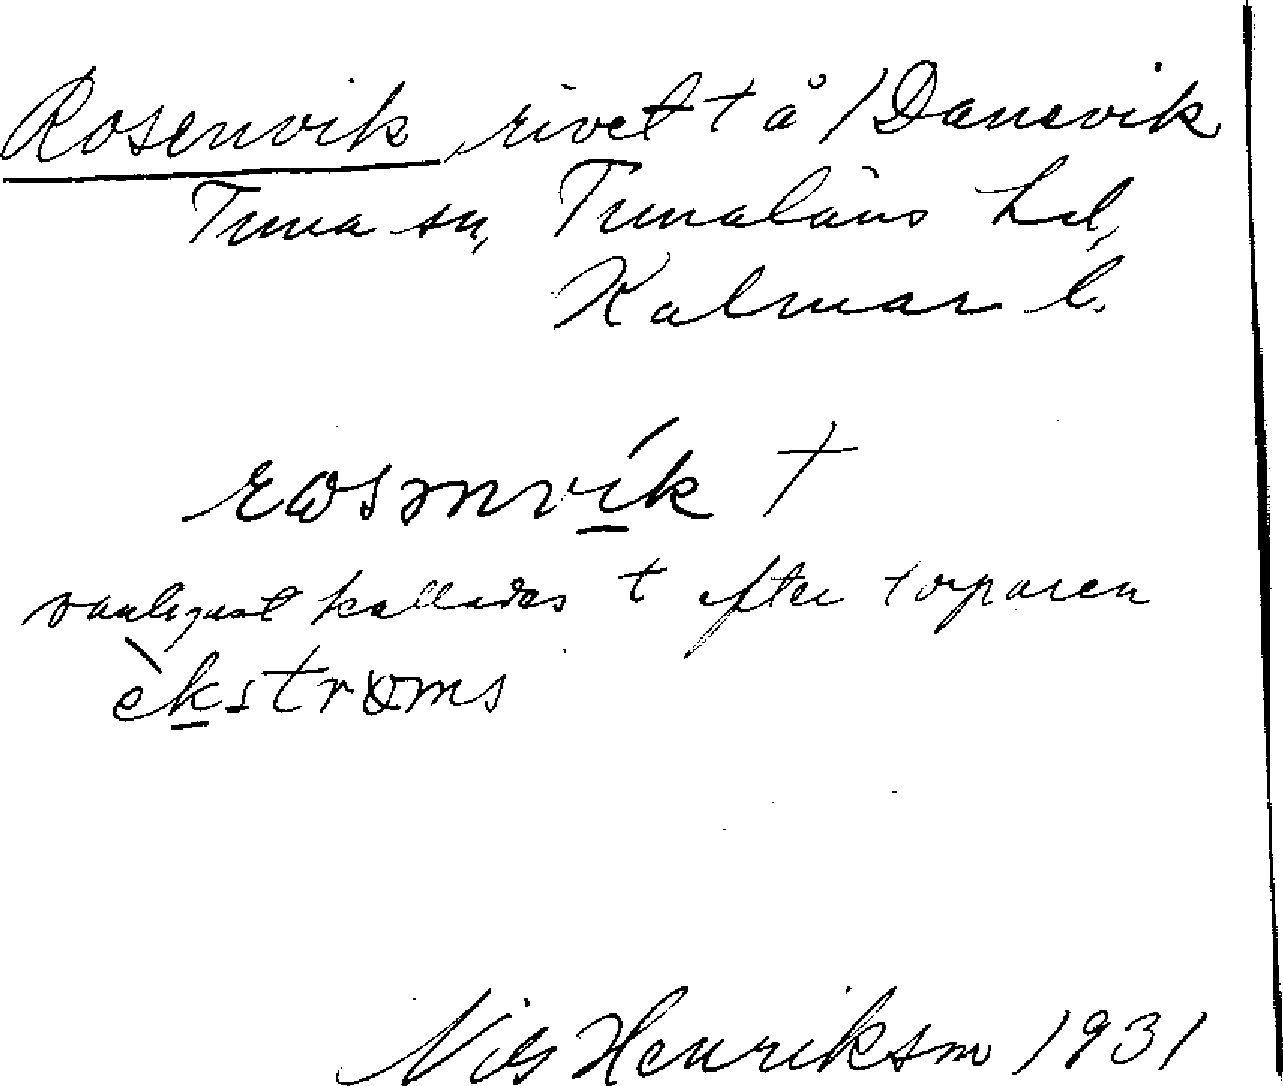 Rosenvik, rivet t å /Danevik
Tuna sn, Tunaläns hd,
Kalmar l.
rosənvík †
vanligast kallades t efter torparen
èkstroms
Nils Henrikson 1931